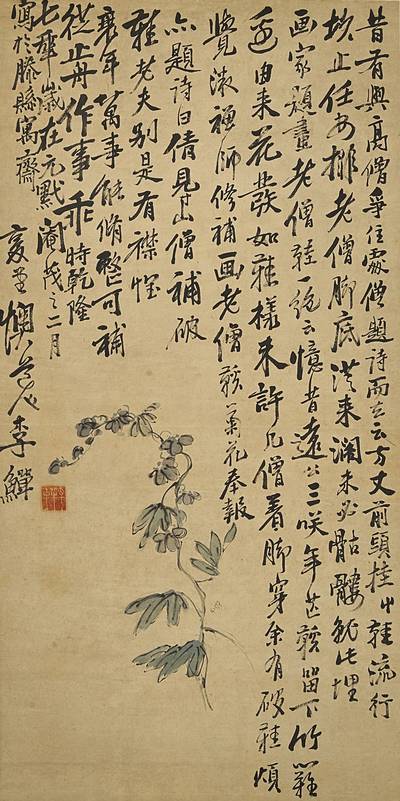 昔有與高僧爭住處僧題詩而去云方丈前頭挂草鞋流行
坎止任安排老僧脚底從來濶未必骷髏就此埋
画家題畫老僧鞋一絕云憶昔遠公三咲年芒鞋留下竹籬
邊由來花發如鞋樣未許凡僧着脚穿余有破鞋煩
覺液禪師修補画老僧鞋菊花奉報
亦題詩曰倩見山僧補破
鞋老夫別是有襟懷
衰年萬事能脩整可補
從歬作事乖時乾隆
七年歲在元黓閹茂之二月
寫於滕縣寓齋
復堂懊道人李鱓